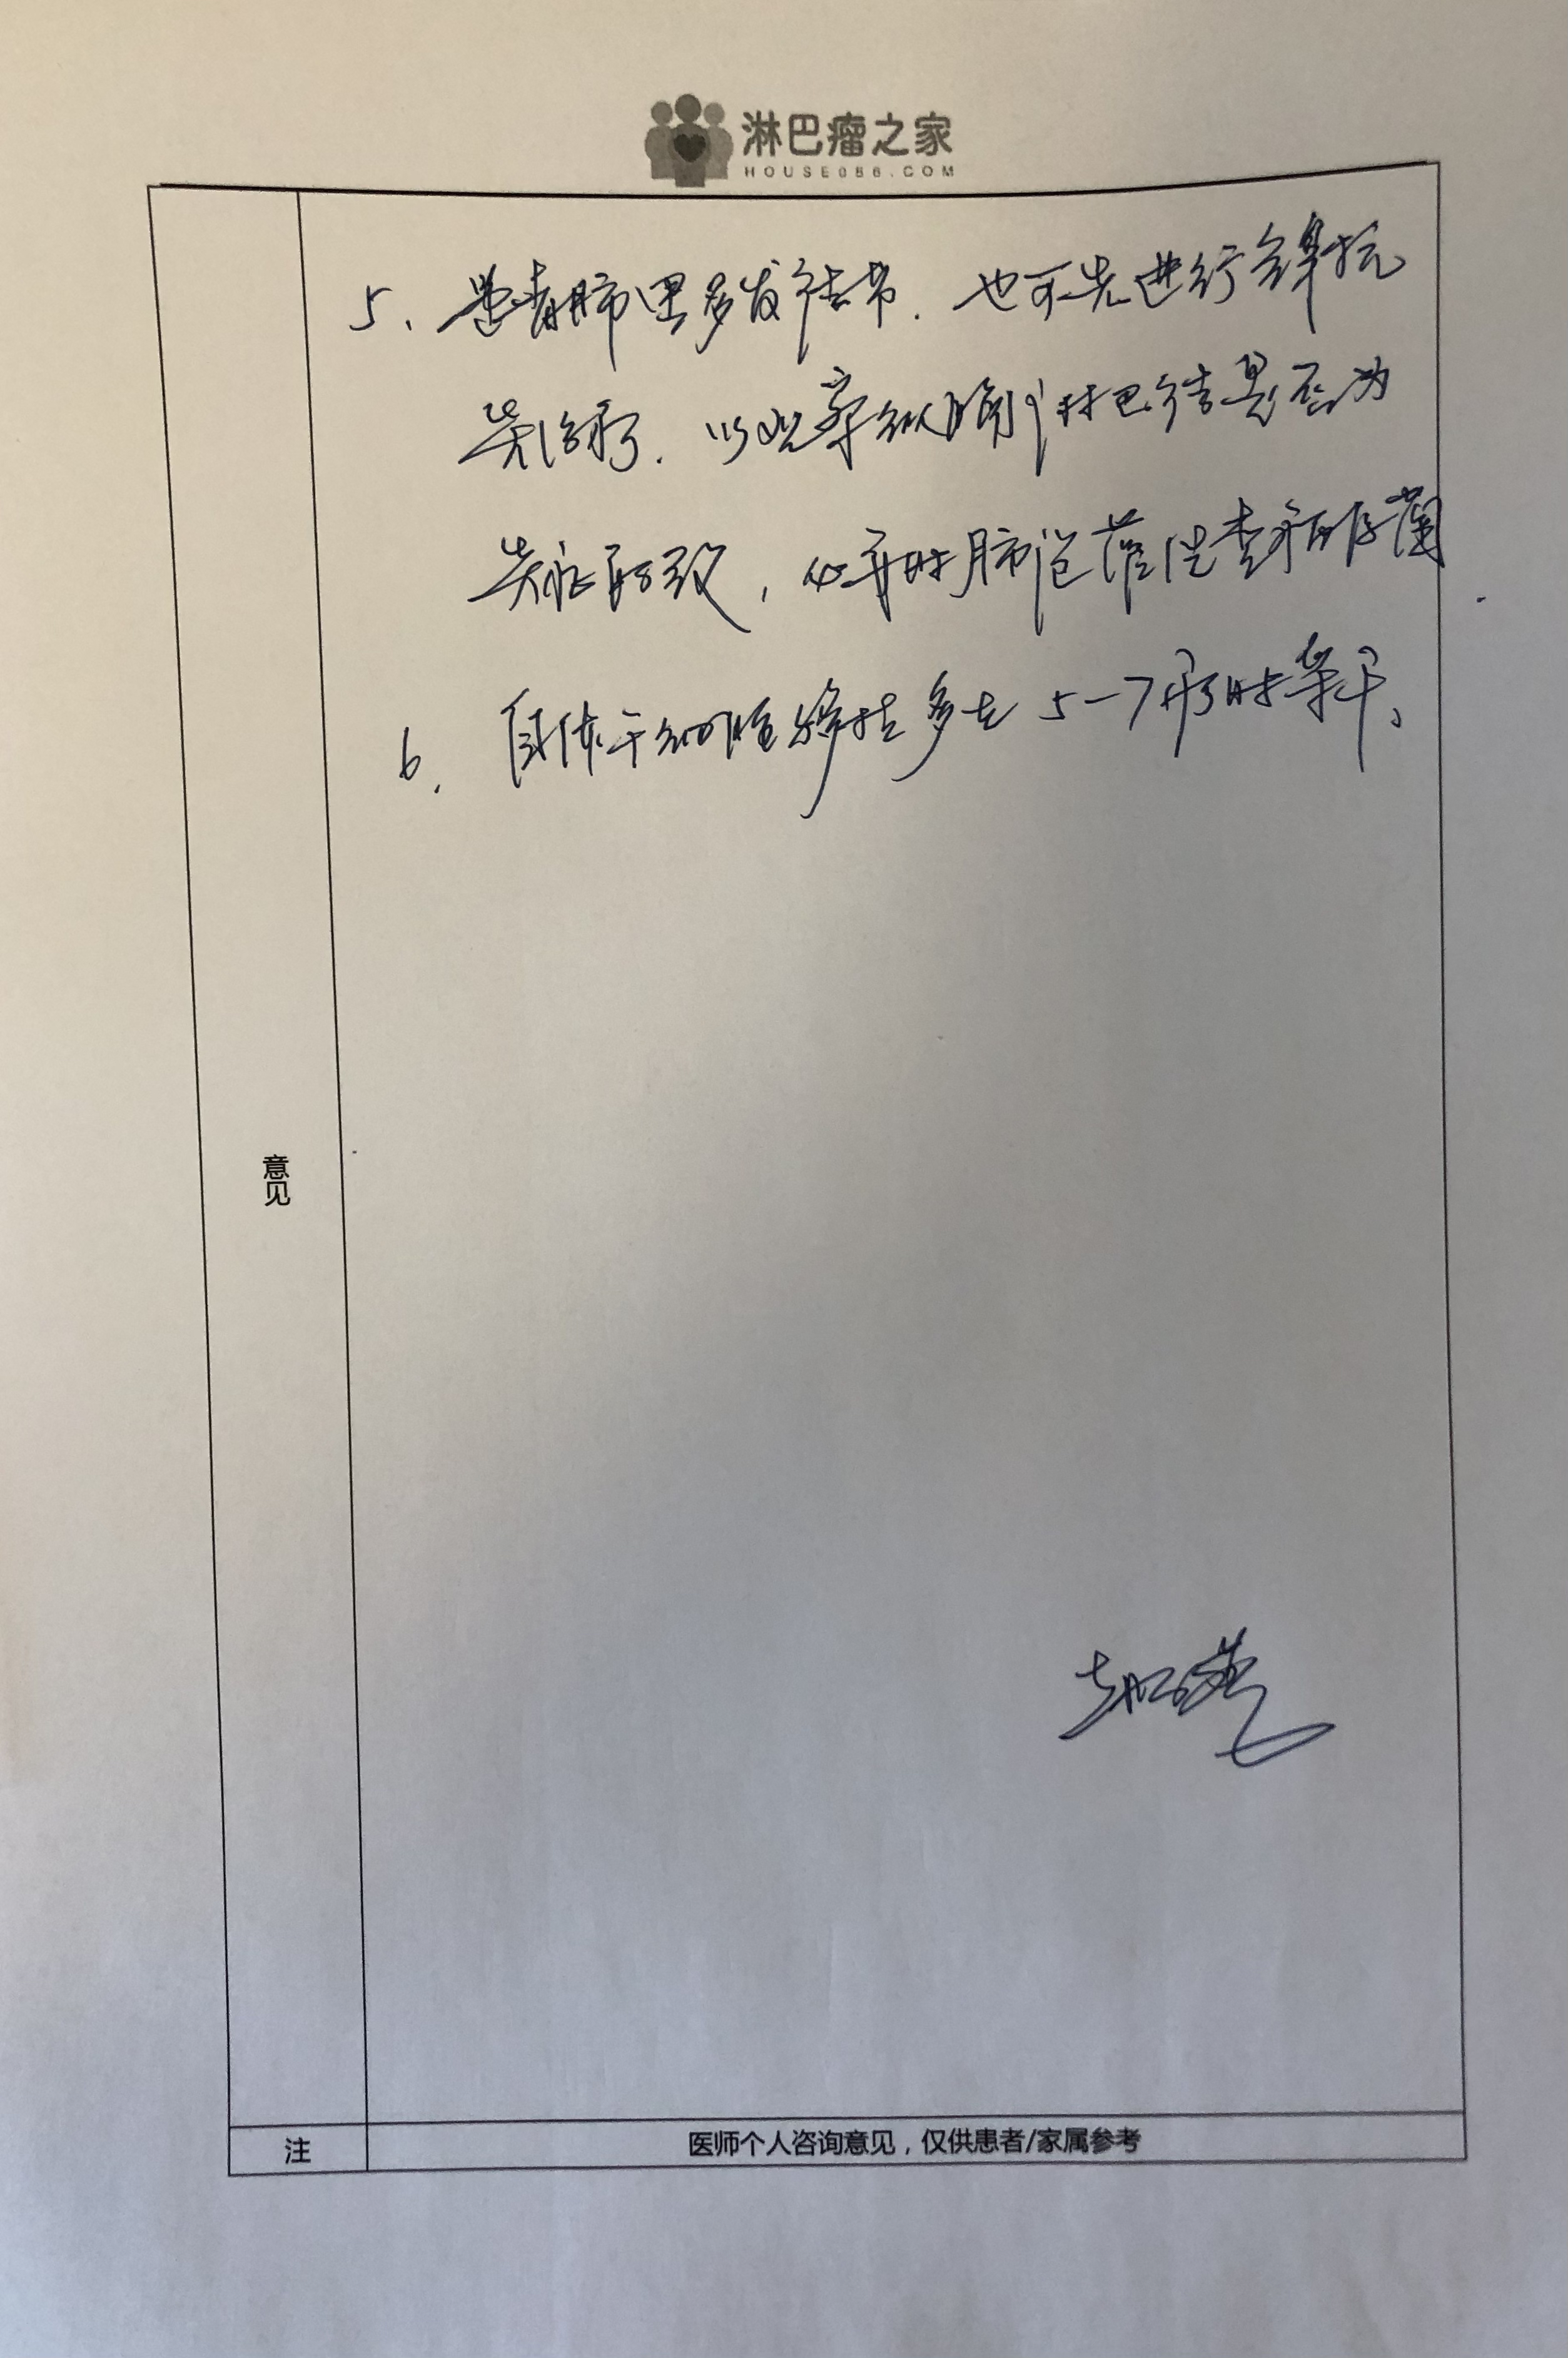 淋巴瘤之家
HOUSE086.COM
5、患者肺里多发结节.也可先进行
治疗.以观察纵膈淋巴结是否为
炎症所致,必要时肺泡灌洗查病原菌
6.自体干细胞移植多在5-7疗时采干、
意见
注
医师个人咨询意见,仅供患者/家属参考